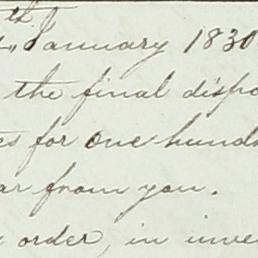 th January 1830
the final dispo
es for one hund
ar from you.
order, in inve